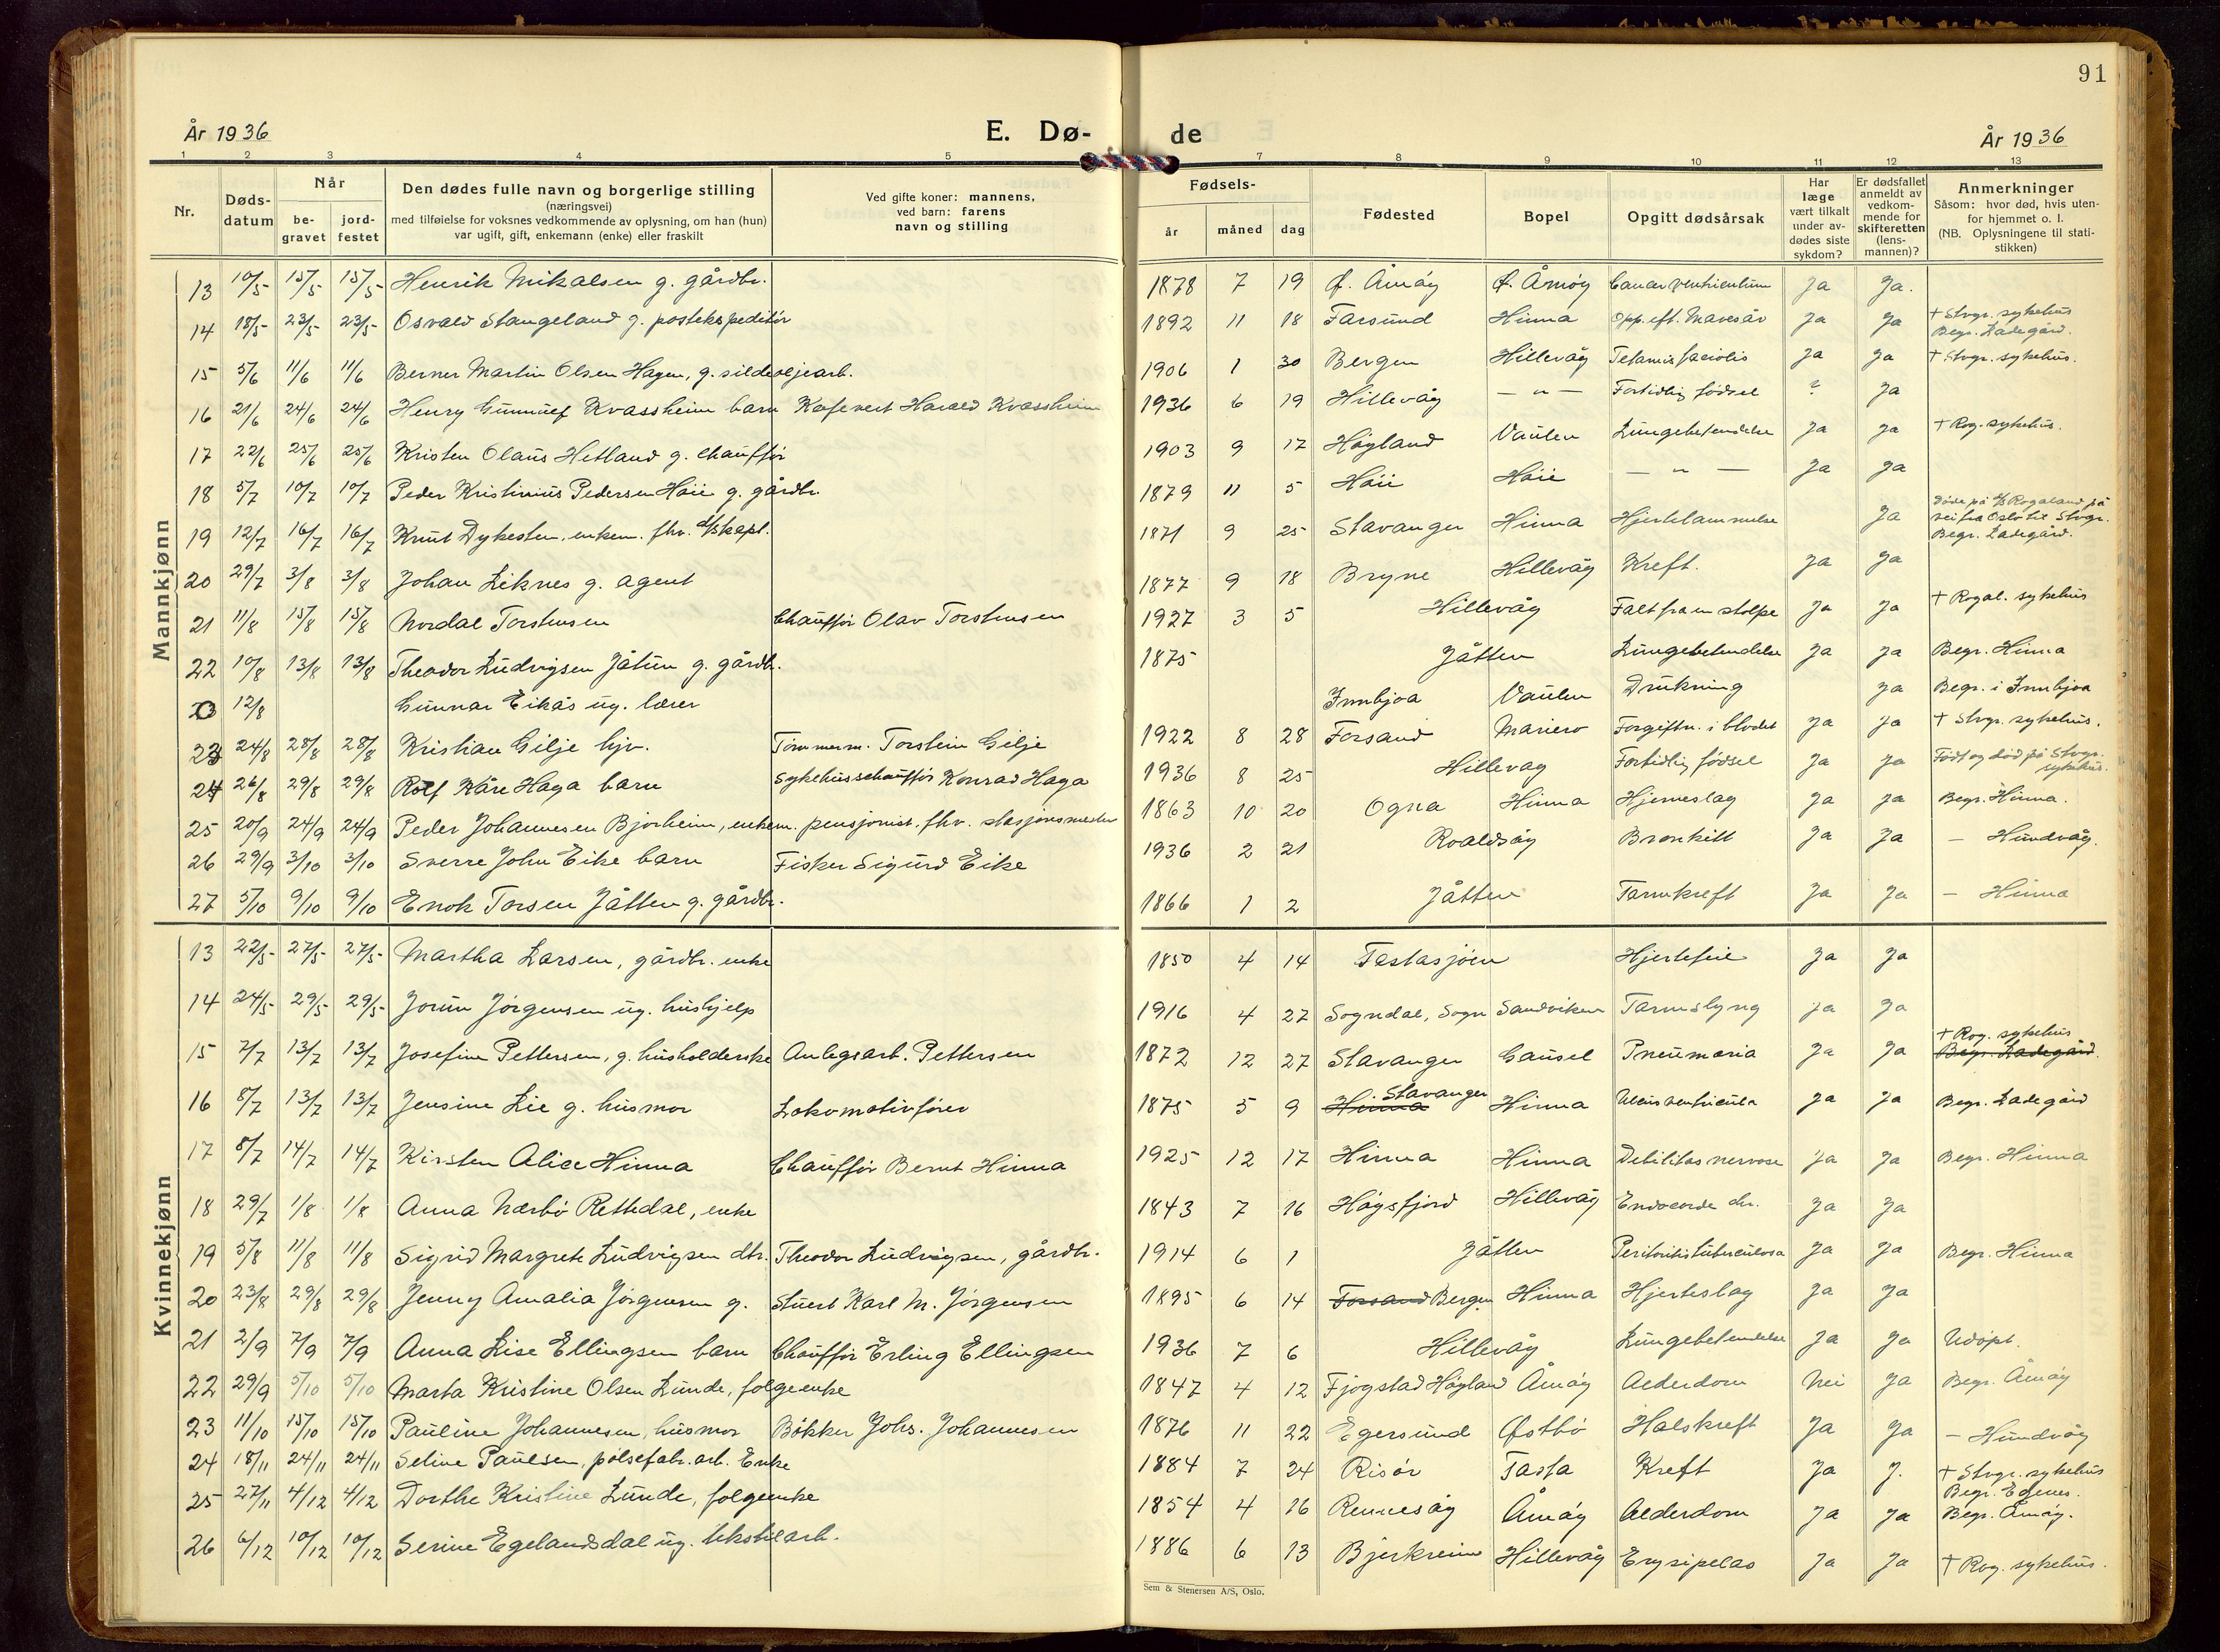 91
År 1936 E. Dø- de År 1936
1 2 3 4 5 7 8 9 10 11 12 13
Nr.
Døds-
datum
Når
be-
gravet
jord-
festet
Den dødes fulle navn og borgerlige stilling
(næringsvei)
med tilføielse for voksnes vedkommende av oplysning, om han (hun)
var ugift, gift, enkemann (enke) eller fraskilt
Ved gifte koner: mannens,
ved barn: farens
navn og stilling
Fødsels-
år måned dag
Fødested
Bopel
Opgitt dødsårsak
Har
læge
vært tilkalt
under av-
dødes siste
sykdom?
Er dødsfallet
anmeldt av
vedkom-
mende for
skifteretten
(lens-
mannen)?
Anmerkninger
Såsom: hvor død, hvis uten-
for hjemmet o. l.
(NB. Oplysningene til stati-
stikken)
Mannkjønn
13 10/5 15/5 15/5 Henrik Mikalsen g. gårdbr. 1878 7 19 Ø. Åmøy Ø. Åmøy Cancer ventriculum Ja Ja.
14 18/5 23/5 23/5 Osvald Stangeland g. postekspeditør 1892 11 18 Farsund Hinna Opp. eft. Mavesår Ja Ja + Stvgr. sykehus
Begr. Ladegård.
15 5/6 11/6 11/6 Berner Martin Olsen Hagen, g. sildeoljearb. 1906 1 30 Bergen Hillevåg Tetanus facialis Ja Ja + Stvgr. sykehus.
16 21/6 24/6 24/6 Henry Gunnulf Kvassheim barn Kafevert Harald Kvassheim 1936 6 19 Hillevåg — " — Fortidlig fødsel ? Ja
17 22/6 25/6 25/6 Kristen Olaus Hetland g. chauffør 1903 9 17 Høyland Vaulen Lungebetendelse Ja Ja + Rog. sykehus.
18 5/7 10/7 10/7 Peder Kristinius Pedersen Høie g. gårdbr. 1879 11 5 Høie Høie — " — Ja Ja
19 12/7 16/7 16/7 Knut Dykesten, enkem. fhv. d/skapt. 1871 9 25 Stavanger Hinna Hjertelammelse Ja Døde på d/s Rogaland på
vei fra Oslo til Stvgr.
Begr. Ladegård.
20 29/7 3/8 3/8 Johan Liknes g. agent 1877 9 18 Bryne Hillevåg Kreft. Ja Ja
21 11/8 15/8 15/8 Nordal Torstensen Chauffør Olav Torstensen 1927 3 5 Hillevåg Falt fra en stolpe Ja Ja + Rogal. sykehus
22 10/8 13/8 13/8 Theodor Ludvigsen Jåtun g. gårdb. 1875 Jåtten Lungebetendelse Ja Ja Begr. Hinna
12/8 Gunnar Eikås ug. lærer Innbjoa Vaulen Drukning Ja Begr. i Innbjoa
23 24/8 28/8 28/8 Kristian Gilje hjv. Tømmerm. Torstein Gilje 1922 8 28 Forsand Mariero Forgiftn. i blodet Ja Ja + Stvgr. sykehus.
24 26/8 29/8 29/8 Rolf Kåre Haga barn Sykehuschauffør Konrad Haga 1936 8 25 Hillevåg Fortidlig fødsel Ja Ja Født og død på Stvgr.
sykehus.
25 20/9 24/9 24/9 Peder Johannesen Bjorheim, enkem. pensjonist. fhv. stasjonsmester 1863 10 20 Ogna Hinna Hjerneslag Ja Ja Begr. Hinna.
26 29/9 3/10 3/10 Sverre John Eike barn Fisker Sigurd Eike 1936 2 21 Roaldsøy Bronkitt Ja Ja — Hundvåg.
27 5/10 9/10 9/10 Enok Torsen Jåtten g. gårdbr. 1866 1 2 Jåtten Tarmkreft Ja Ja — Hinna
Kvinnekjønn
13 22/5 27/5 27/5 Martha Larsen, gårdbr. enke 1850 4 14 Tastasjøen Hjertefeil Ja Ja
14 24/5 29/5 29/5 Jorun Jørgensen ug. hushjelp 1916 4 27 Sogndal, Sogn Sandviken Tarmslyng Ja Ja
15 7/7 13/7 13/7 Josefine Pettersen, g. husholderske Anlegsarb. Pettersen 1872 12 27 Stavanger Gausel Pneumonia Ja Ja + Rog. sykehus
Begr. Ladegård.
16 8/7 13/7 13/7 Jensine Lie g. husmor Lokomotivfører 1875 5 9 Hinna Stavanger Hinna Ulcus ventricula Ja Ja Begr. Ladegård
17 8/7 14/7 14/7 Kirsten Alice Hinna Chauffør Bernt Hinna 1925 12 17 Hinna Hinna Debilitas nervosa Ja Ja Begr. Hinna
18 29/7 1/8 1/8 Anna Nærbø Rettedal, enke 1843 7 16 Høgsfjord Hillevåg Endocorde chr. Ja Ja
19 5/8 11/8 11/8 Sigrid Margrete Ludvigsen dtr. Theodor Ludvigsen, gårdbr. 1914 6 1 Jåtten Peritonitis tuberculosa Ja Ja Begr. Hinna
20 23/8 29/8 29/8 Jenny Amalia Jørgensen g. Stuert Karl M. Jørgensen 1895 6 14 Forsand Bergen Hinna Hjerteslag Ja Ja
21 2/9 7/9 7/9 Anna Lise Ellingsen barn Chauffør Erling Ellingsen 1936 7 6 Hillevåg Lungebetendelse Ja Ja Udøpt.
22 29/9 5/10 5/10 Marta Kristine Olsen Lunde, folgeenke 1847 4 12 Fjogstad Høyland Åmøy Alderdom Nei Ja Begr. Åmøy
23 11/10 15/10 15/10 Pauline Johannesen, husmor Bøkker Johs. Johannesen 1876 11 22 Egersund Østbø Halskreft Ja Ja — Hundvåg
24 18/11 24/11 24/11 Seline Paulsen, pølsefabr. arb. Enke 1884 7 24 Risør Tasta Kreft Ja J. + Stvgr. sykehus
Begr. Egenes.
25 27/11 4/12 4/12 Dorthe Kristine Lunde, folgeenke 1854 4 16 Rennesøy Åmøy Alderdom Ja Ja Begr. Åmøy.
26 6/12 10/12 10/12 Serine Egelandsdal ug. tekstilarb. 1886 6 13 Bjerkreim Hillevåg Erysipelas Ja Ja + Rog. sykehus.
Sem & Stenersen A/S, Oslo.